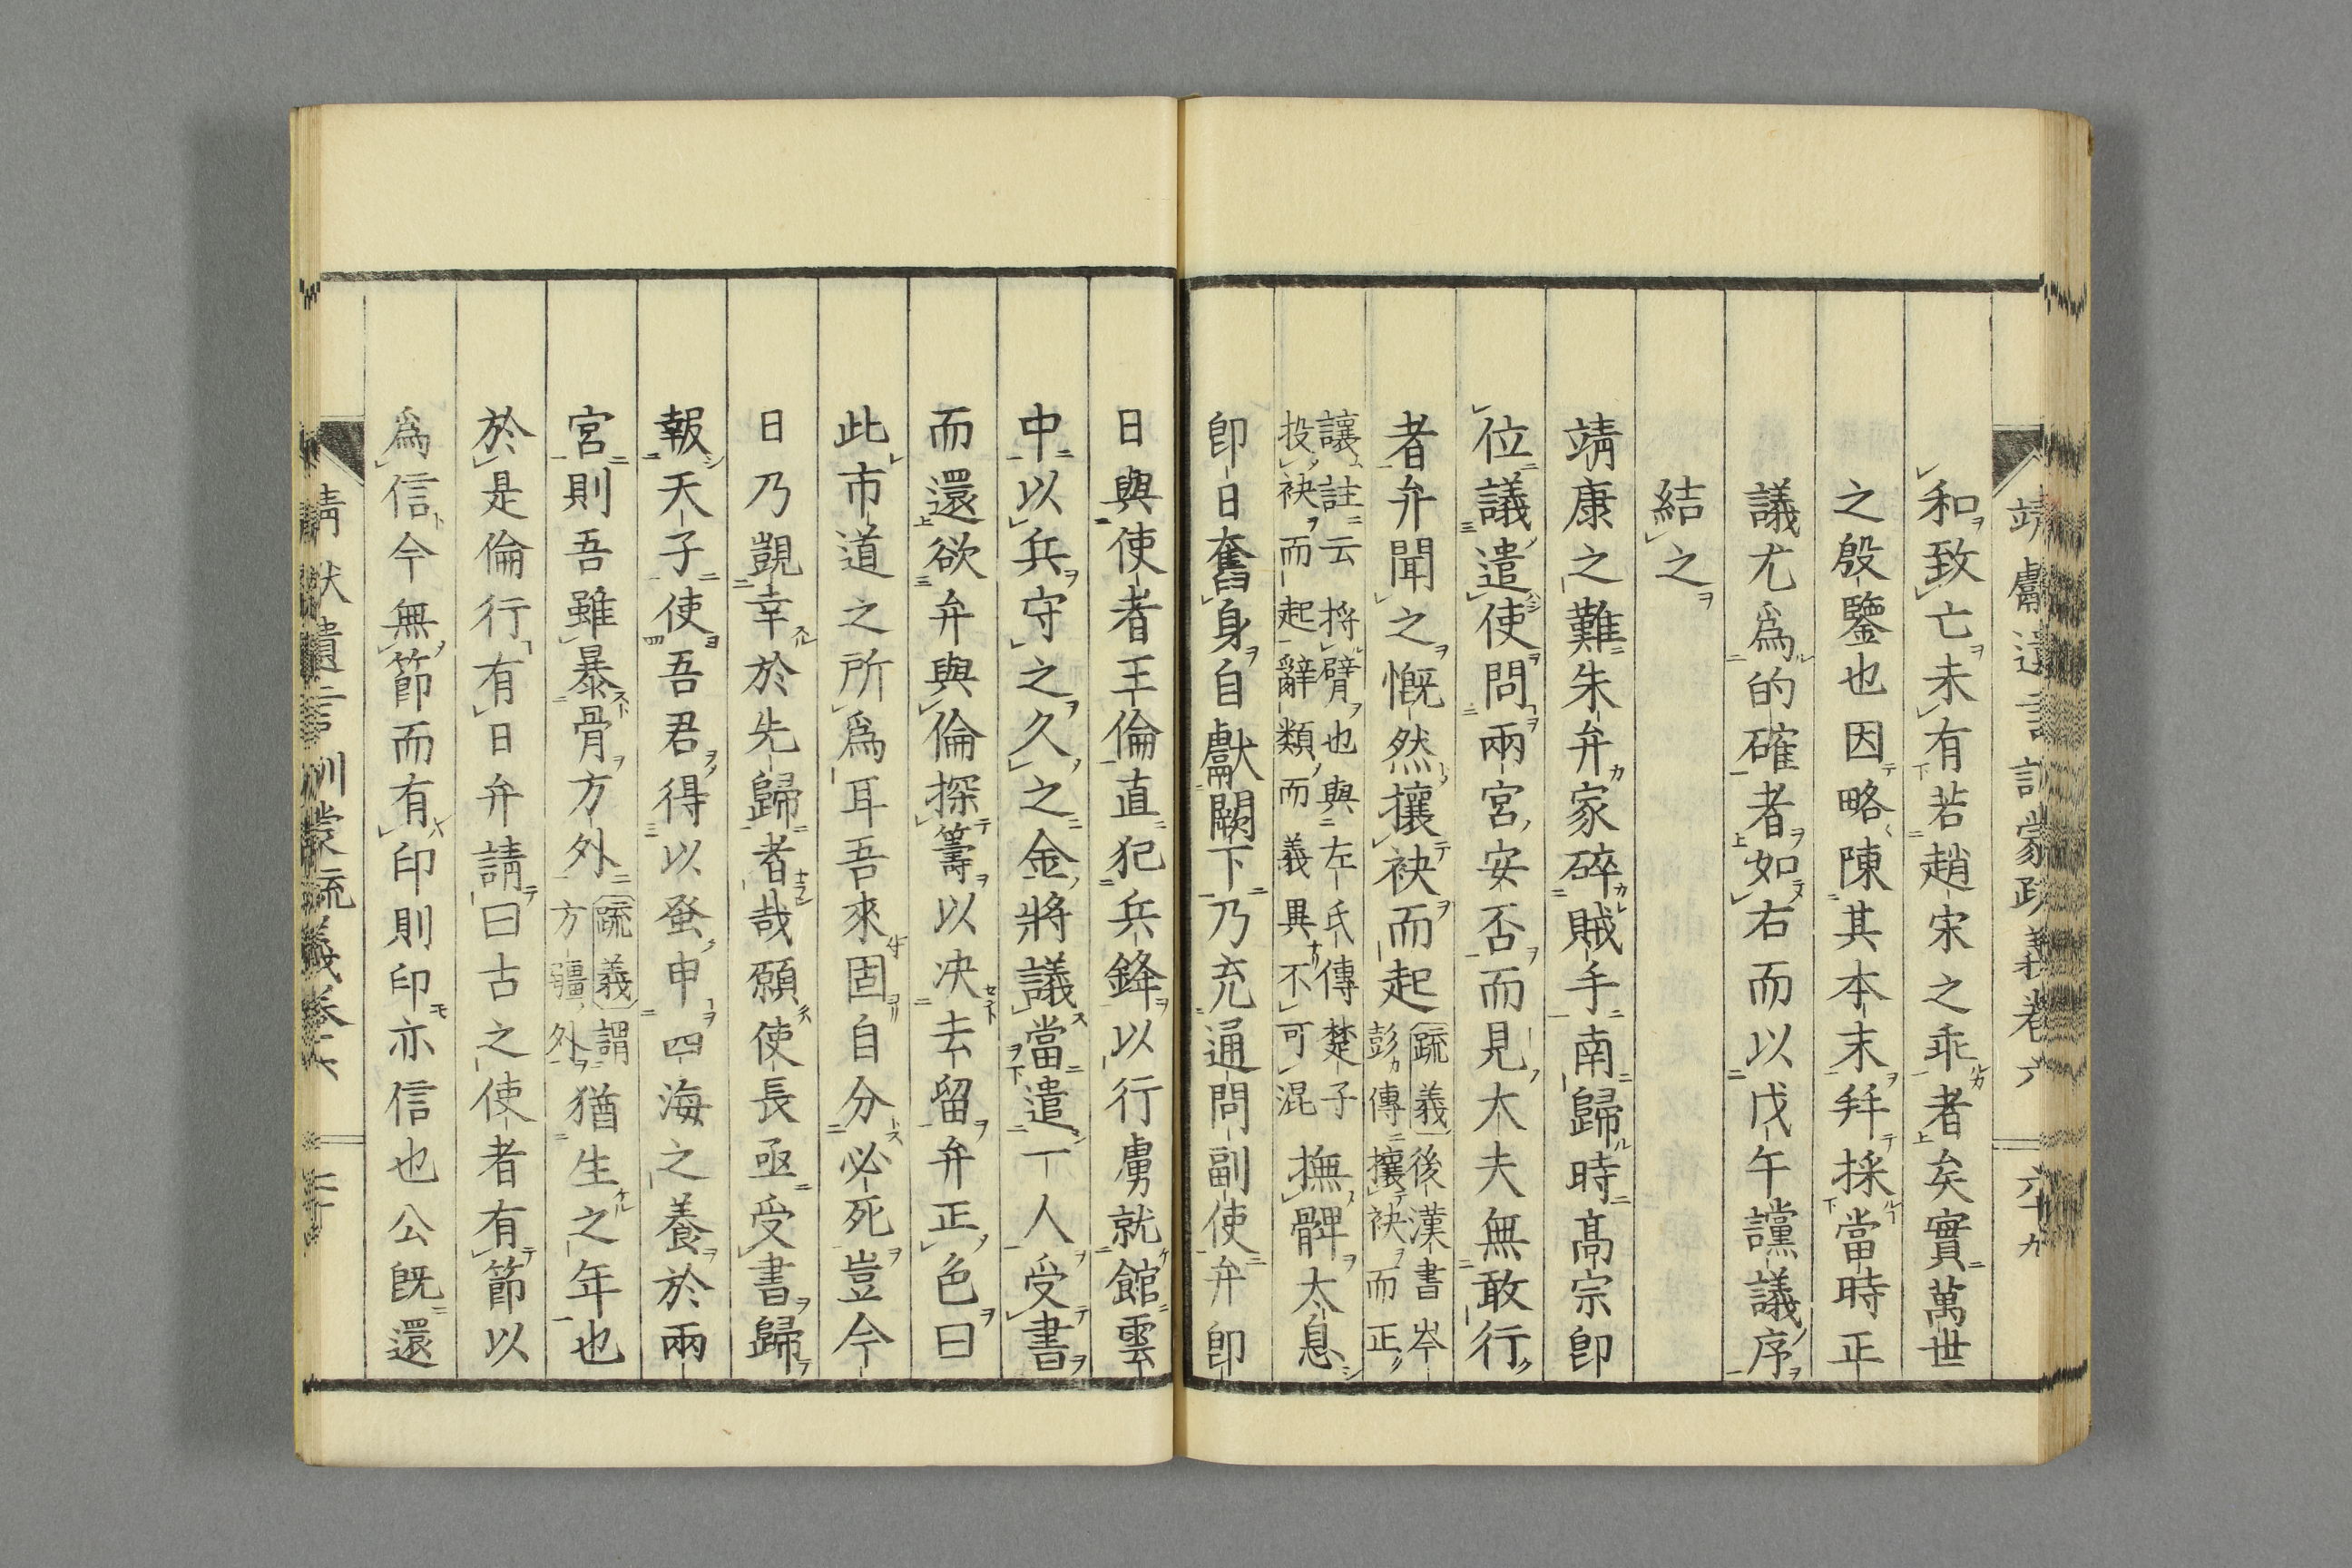 靖獻遺言訓蒙疏義卷六 六十九
和致亡未有若趙宋之乖者矣實萬世
之殷鑒也因略陳其本末拜採當時正
議尤爲的確者如右而以戊午讜議序
結之
靖康之難朱弁家碎賊手南歸時髙宗卽
位議遣使問兩宮安否而見大夫無敢行
者弁聞之慨然攘袂而起
疏義後漢書岑
彭傳攘袂而正
讓註云捋臂也與左氏傳楚子
投袂而起辭類而義異不可混
撫髀太息
卽日奮身自獻闕下乃充通問副使弁卽
日與使者王倫直犯兵鋒以行虜就館雲
中以兵守之久之金將議當遣一人受書
而還欲弁與倫探籌以决去留弁正色曰
此市道之所爲耳吾來固自分必死豈今
日乃覬幸於先歸者哉願使長亟受書歸
報天子使吾君得以蚤申四海之養於兩
宮則吾雖暴骨方外
疏義謂
方疆外
猶生之年也
於是倫行有日弁請曰古之使者有節以
爲信今無節而有印則印亦信也公旣還
靖獻遺言訓蒙疏義卷六